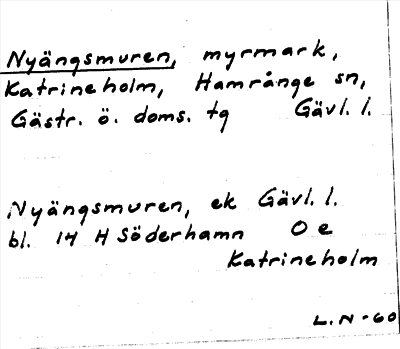 Nyängsmuren, myrmark,
Katrineholm, Hamrånge sn,
Gästr. ö. doms. tg Gävl. l.
Nyängsmuren, ek Gävl. l.
bl. 14 H Söderhamn O e
Katrineholm
L.N-60